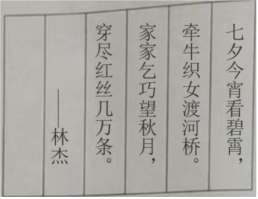 七夕今宵看碧霄，
牵牛织女渡河桥。
家家乞巧望秋月，
穿尽红丝几万条。
——林杰